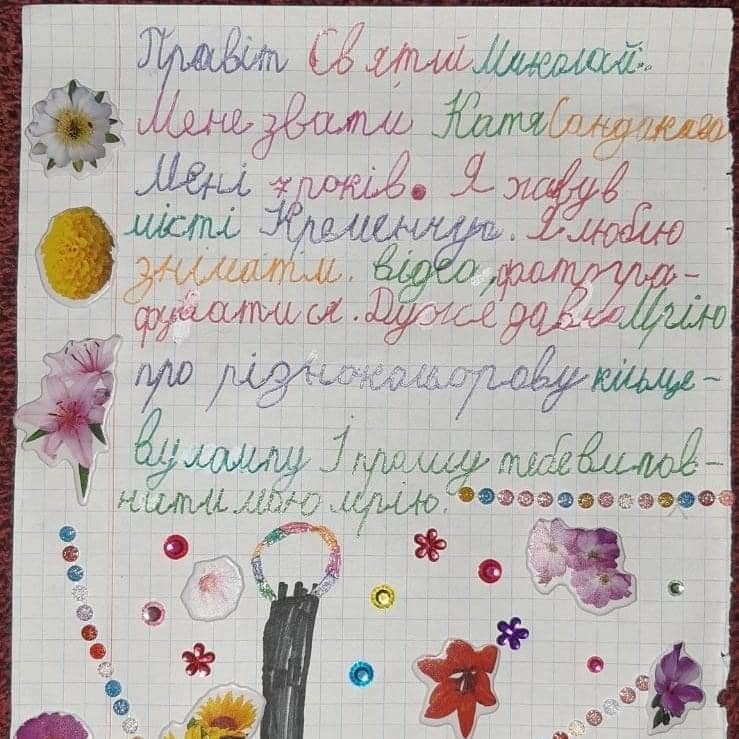 Привіт Святий Миколай.
Мене звати Катя
Мені 7 років. Я живу в
місті Кременчуг. Я люблю
зніматм. відео, фотогра-
фуватися. Дуже давно Мрію
про різнокольорову кільце-
ву лампу І прошу тебе випов-
нити мою мрію.